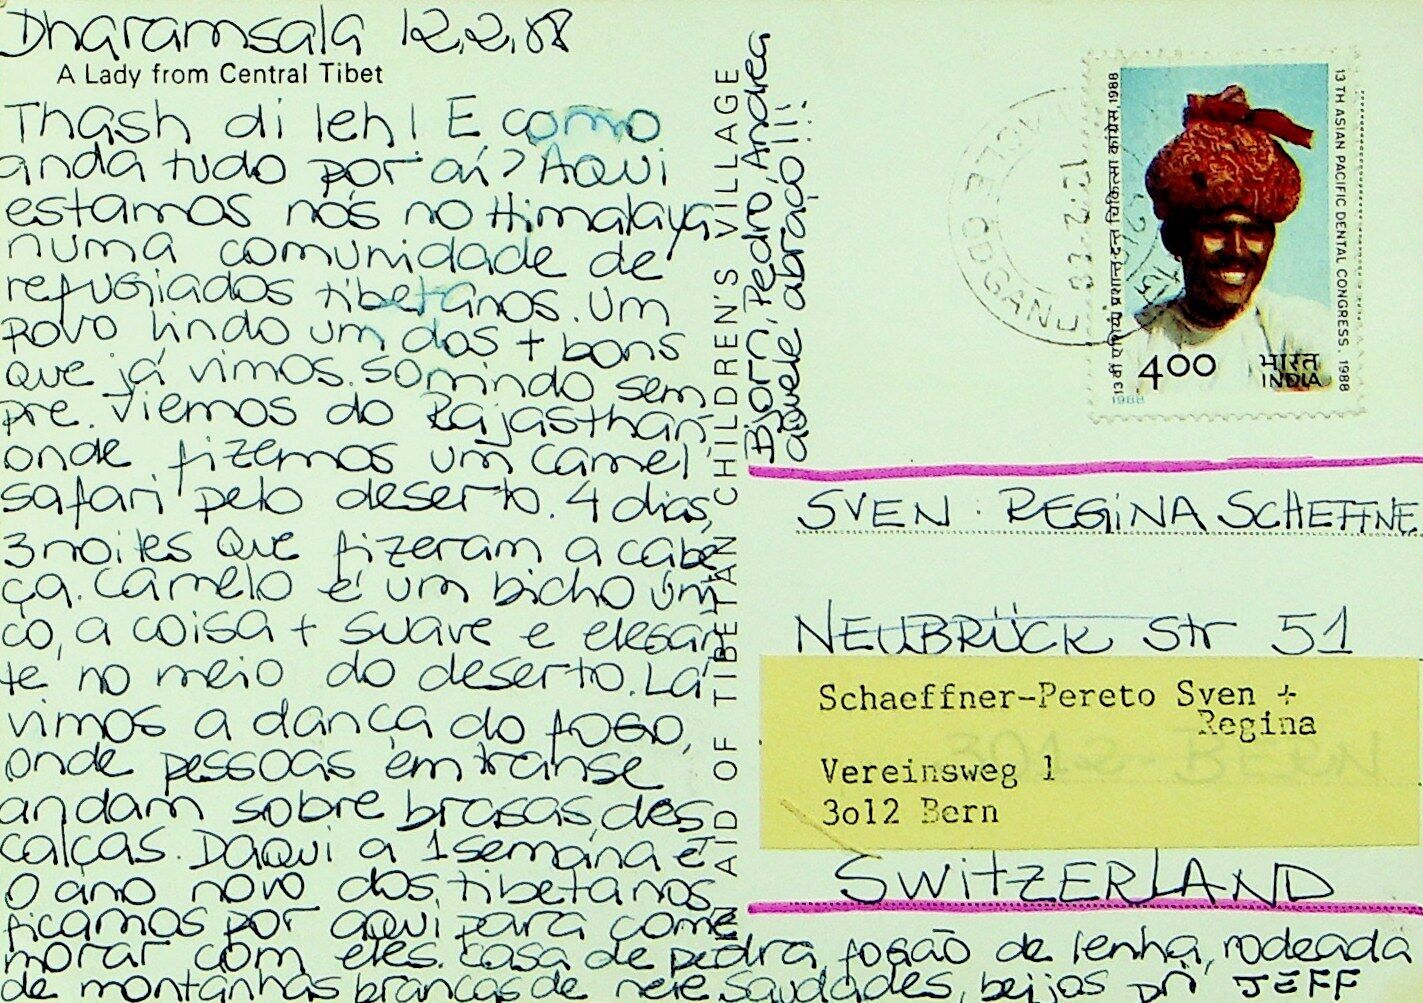 Dharamsala 12.2.88
A Lady from Central Tibet
Thash di leh! E como
anda tudo por aí? Aqui
estamos nós no Himalaya
numa comunidade de
refugiados tibetanos. Um
povo lindo um dos + bons
que já vimos. Sorrindo sem
pre. Viemos do Rajasthan
onde fizemos um camel
safari pelo deserto. 4 dias,
3 noites que fizeram a cabe
ça. Camelo é um bicho úni
co, a coisa + suave e elegan
te no meio do deserto. Lá
vimos a dança do fogo,
onde pessoas em transe
andam sobre brasas, des
calças. Daqui a 1 semana é
o ano novo dos tibetanos
ficamos por aqui para come
morar com eles. Casa de pedra, fogão de lenha, rodeada
de montanhas brancas de neve. Saudades, beijos pri JEFF
IN AID OF TIBETAN CHILDREN'S VILLAGE
Bjorn, Pedro, Andrea
aquele abraço!!!
MCLEOD GANJ
12.2.88
13वीं एशिया प्रशान्त दन्त चिकित्सा कांग्रेस, 1988
13 TH ASIAN PACIFIC DENTAL CONGRESS. 1988
400
भारत
INDIA
1988
SVEN . REGINA SCHEFFNE
NEUBRÜCK Str 51
Schaeffner-Pereto Sven +
Regina
Vereinsweg 1
3o12 Bern
3012 - BERN
SWITZERLAND